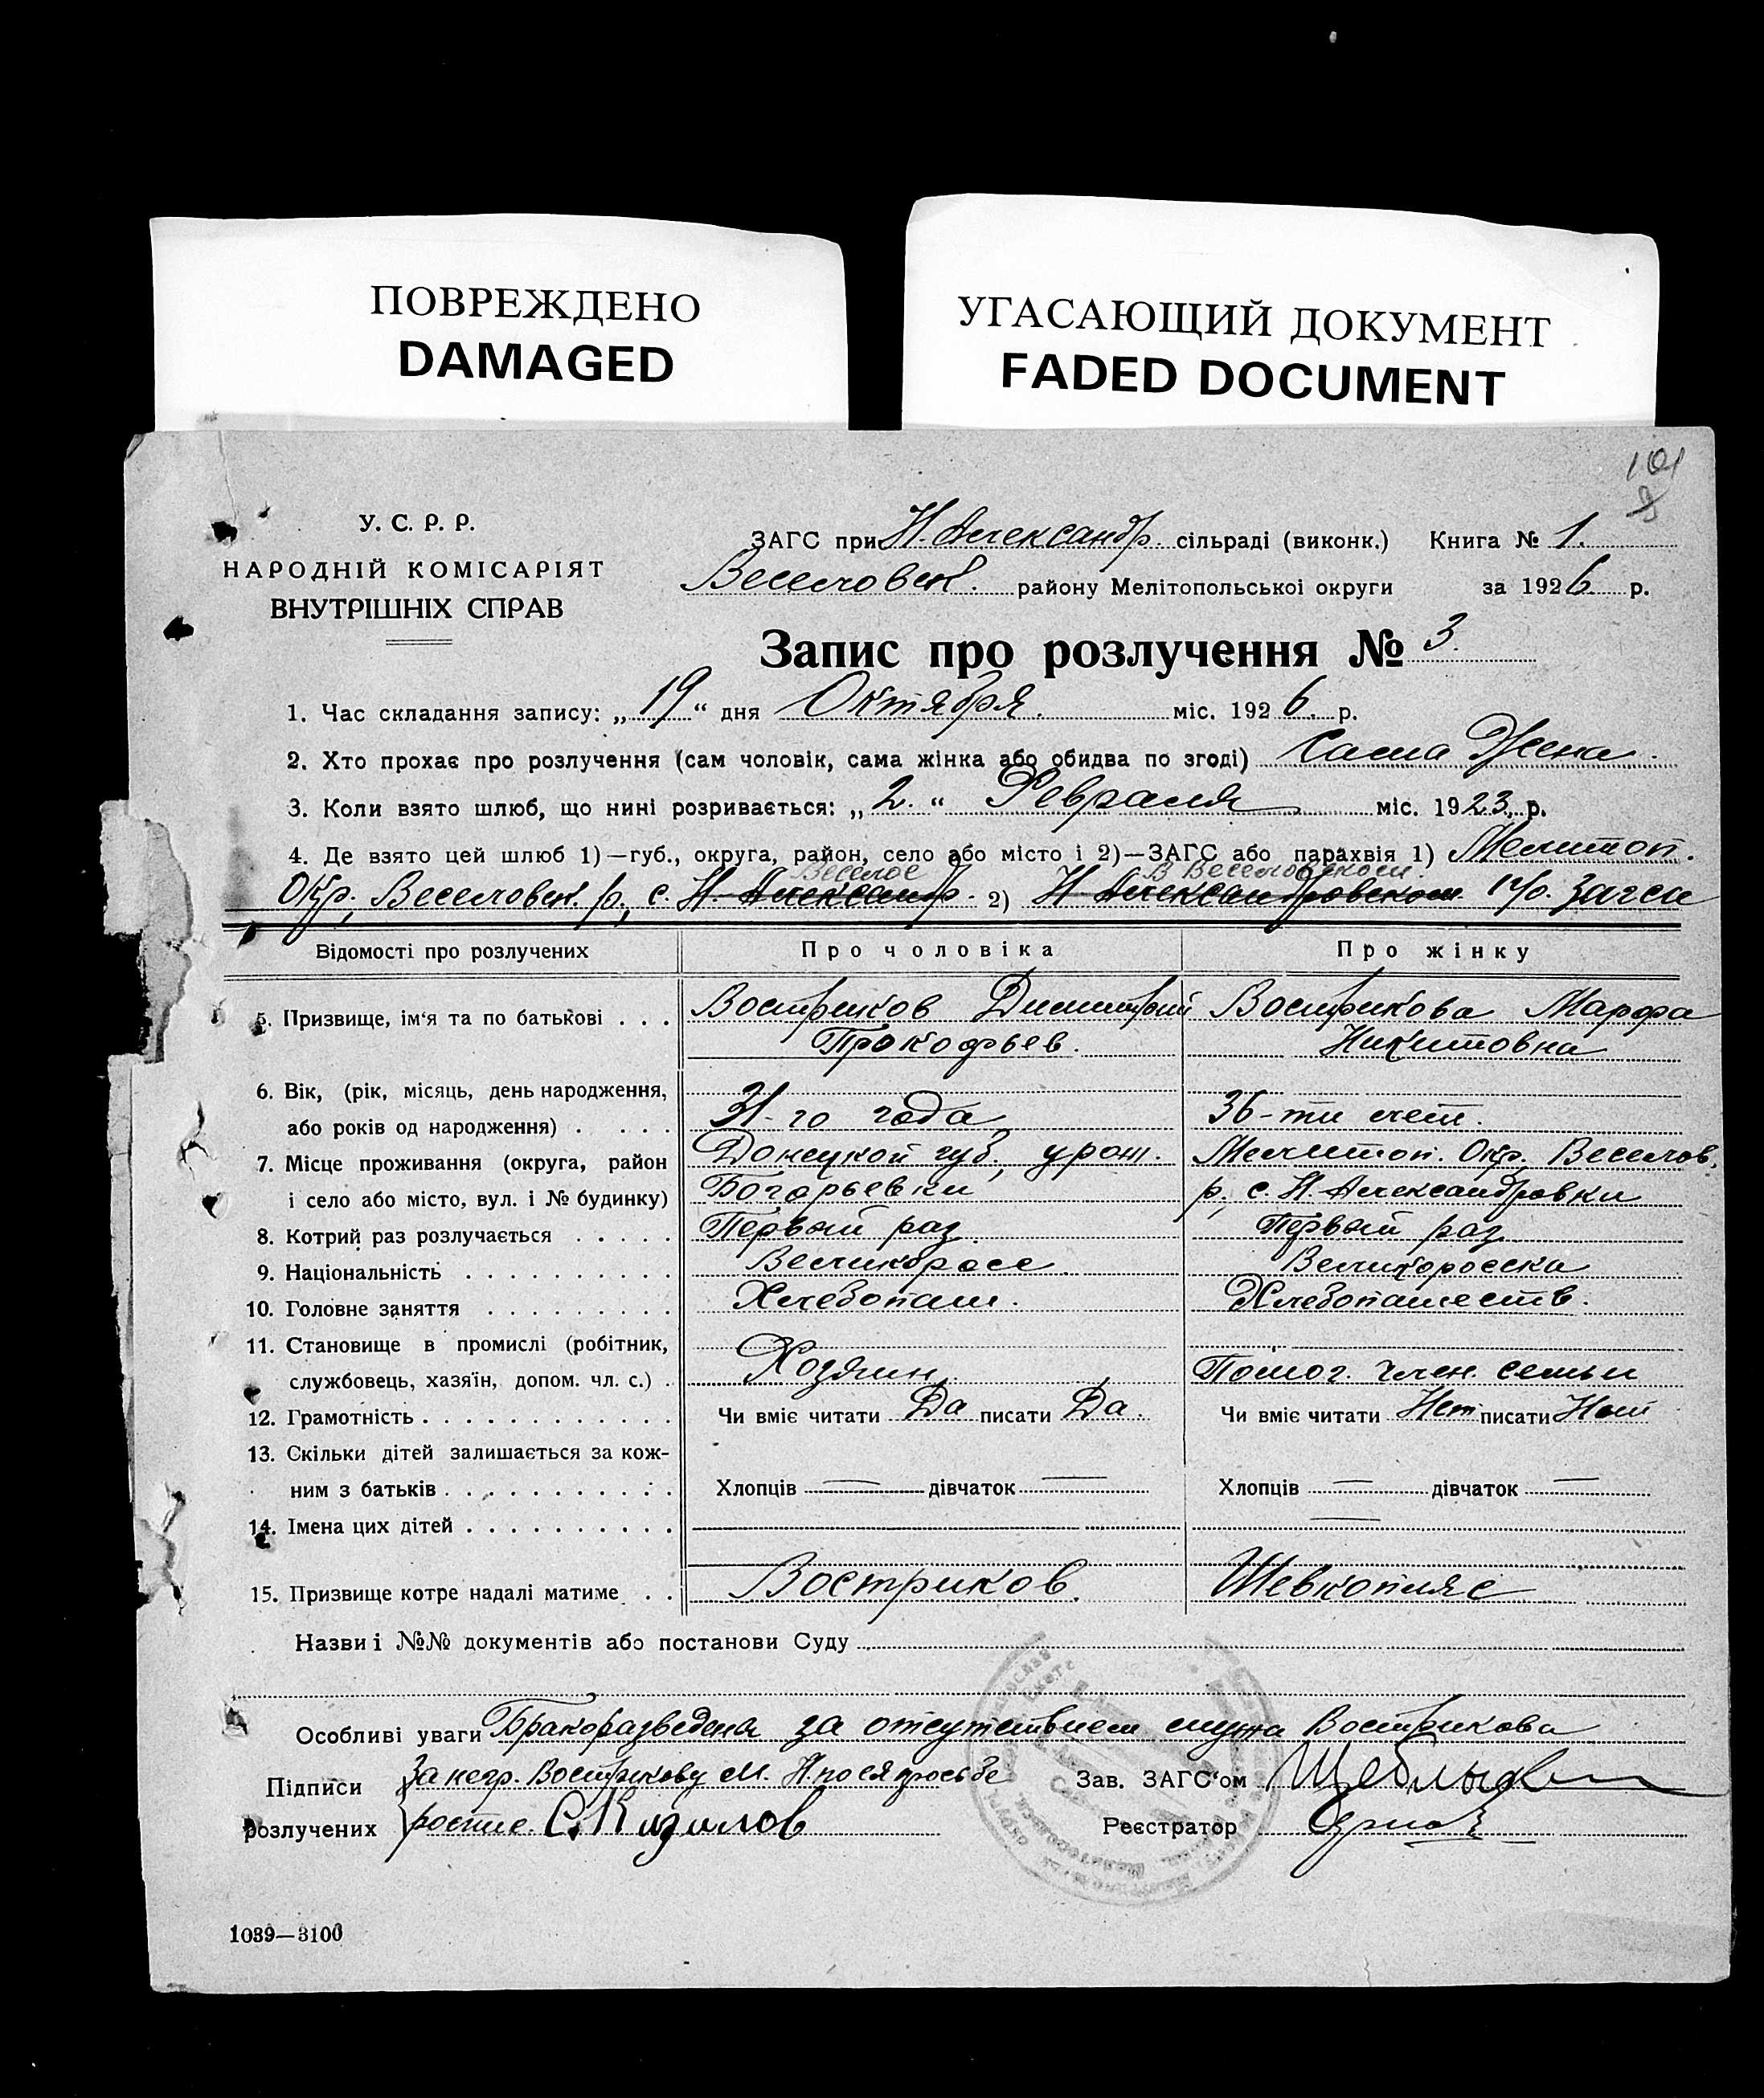 ПОВРЕЖДЕНО
DAMAGED
УГАСАЮЩИЙ ДОКУМЕНТ
FADED DOCUMENT
101
У. С. Р. Р.
НАРОДНІЙ КОМІСАРІЯТ
ВНУТРІШНІХ СПРАВ
ЗАГС при Н. Александр. сільраді (виконк.) Книга № 1.
Веселовск. району Мелітопольської округи за 1926 р.
Запис про розлучення № 3.
1. Час складання запису: „19“ дня Октября. міс. 1926. р.
2. Хто прохає про розлучення (сам чоловік, сама жінка або обидва по згоді) Сама Жена.
3. Коли взято шлюб, що нині розривається: „2.“ Февраля міс. 1923. р.
4. Де взято цей шлюб 1)—губ., округа, район, село або місто і 2)—ЗАГС або парахвія 1) Мелитоп.
Веселое В Веселовском.
Окр., Веселовск. р., с. Н. Александр. 2) Н Александровском р/о. Загса
Відомості про розлучених
Про чоловіка
Про жінку
5. Призвище, ім‘я та по батькові . . .
Востриков Димитрий
Прокофьев.
Вострикова Марфа
Никитовна
6. Вік, (рік, місяць, день народження,
або років од народження) . . . .
31-го года
36-ти лет.
7. Місце проживання (округа, район
і село або місто, вул. і № будинку)
Донецкой губ., урож.
Мелитоп. Окр., Веселов.
р., с. Н. Александровки
8. Котрий раз розлучається . . . . .
Первый раз.
Первый раз
9. Національність . . . . . . . . . .
Великоросс.
Великоросска
10. Головне заняття . . . . . . . . .
Хлебопаш.
Хлебопашеств.
11. Становище в промислі (робітник,
службовець, хазяїн, допом. чл. с.) .
Хозяин
Помог. член. семьи
12. Грамотність . . . . . . . . . . . .
Чи вміє читати Да писати Да.
Чи вміє читати Нет писати Нет
13. Скільки дітей залишається за кож-
ним з батьків . . . . . . . . . . .
Хлопців — дівчаток —
Хлопців — дівчаток —
14. Імена цих дітей . . . . . . . . . .
15. Призвище котре надалі матиме . .
Востриков.
Шевкопляс
Назви і №№ документів або постанови Суду
Особливі уваги Бракоразведена за отсутствием мужа Вострикова
Підписи
розлучених
За негр. Вострикову М. Н по ея просьбе
роспис. С. Кизилов
Зав. ЗАГС‘ом
Реєстратор
1089—3100